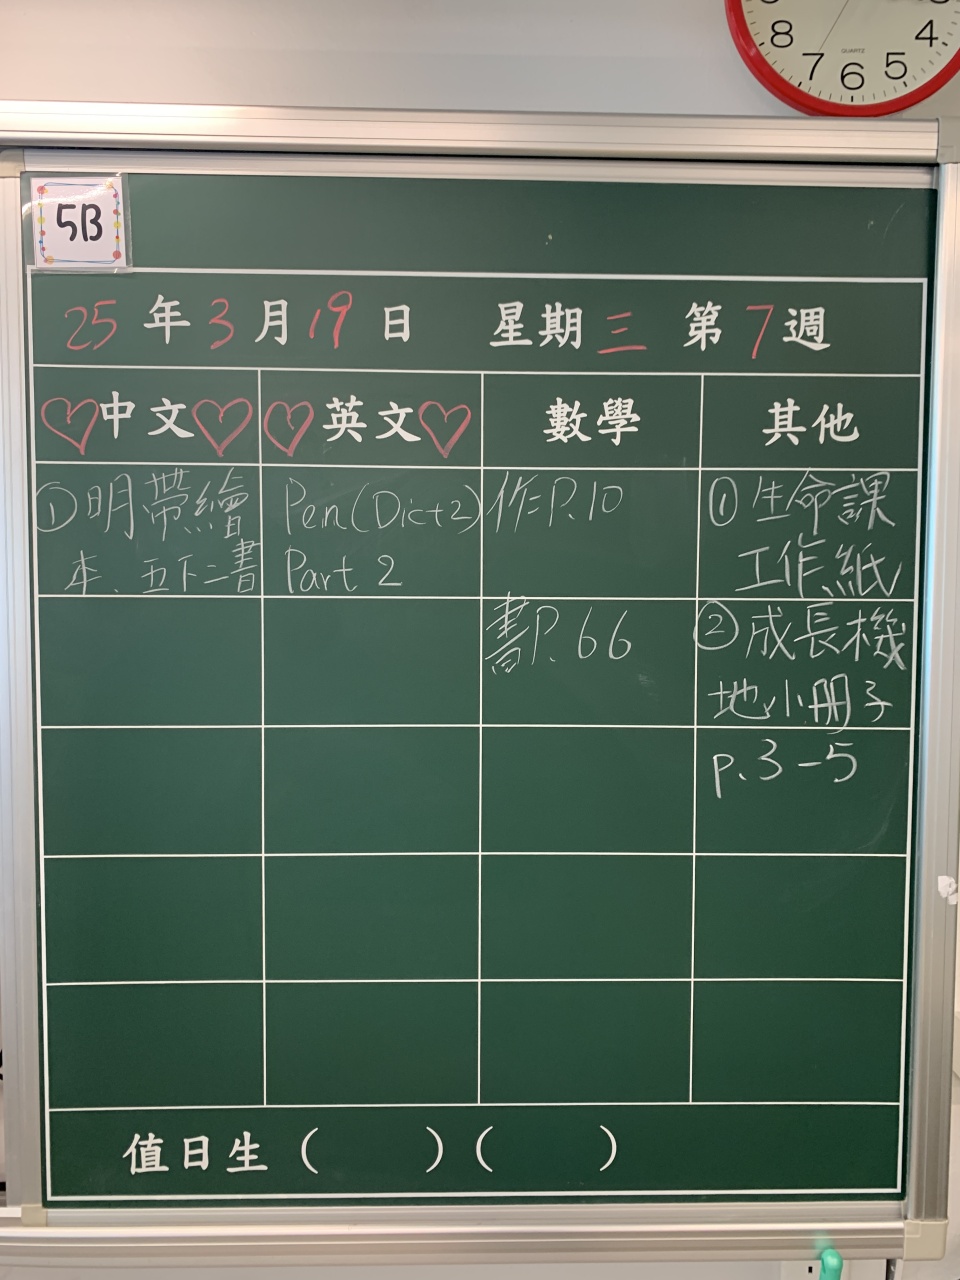 8 7 6 5 4
QUARTZ
5B
25年3月19日 星期三 第7週
中文 英文 數學 其他
①明帶繪
本、五下二書
Pen(Dict2)
Part 2
作P.10
書P.66
①生命課
工作紙
②成長機
地小冊子
p.3-5
值日生( )( )